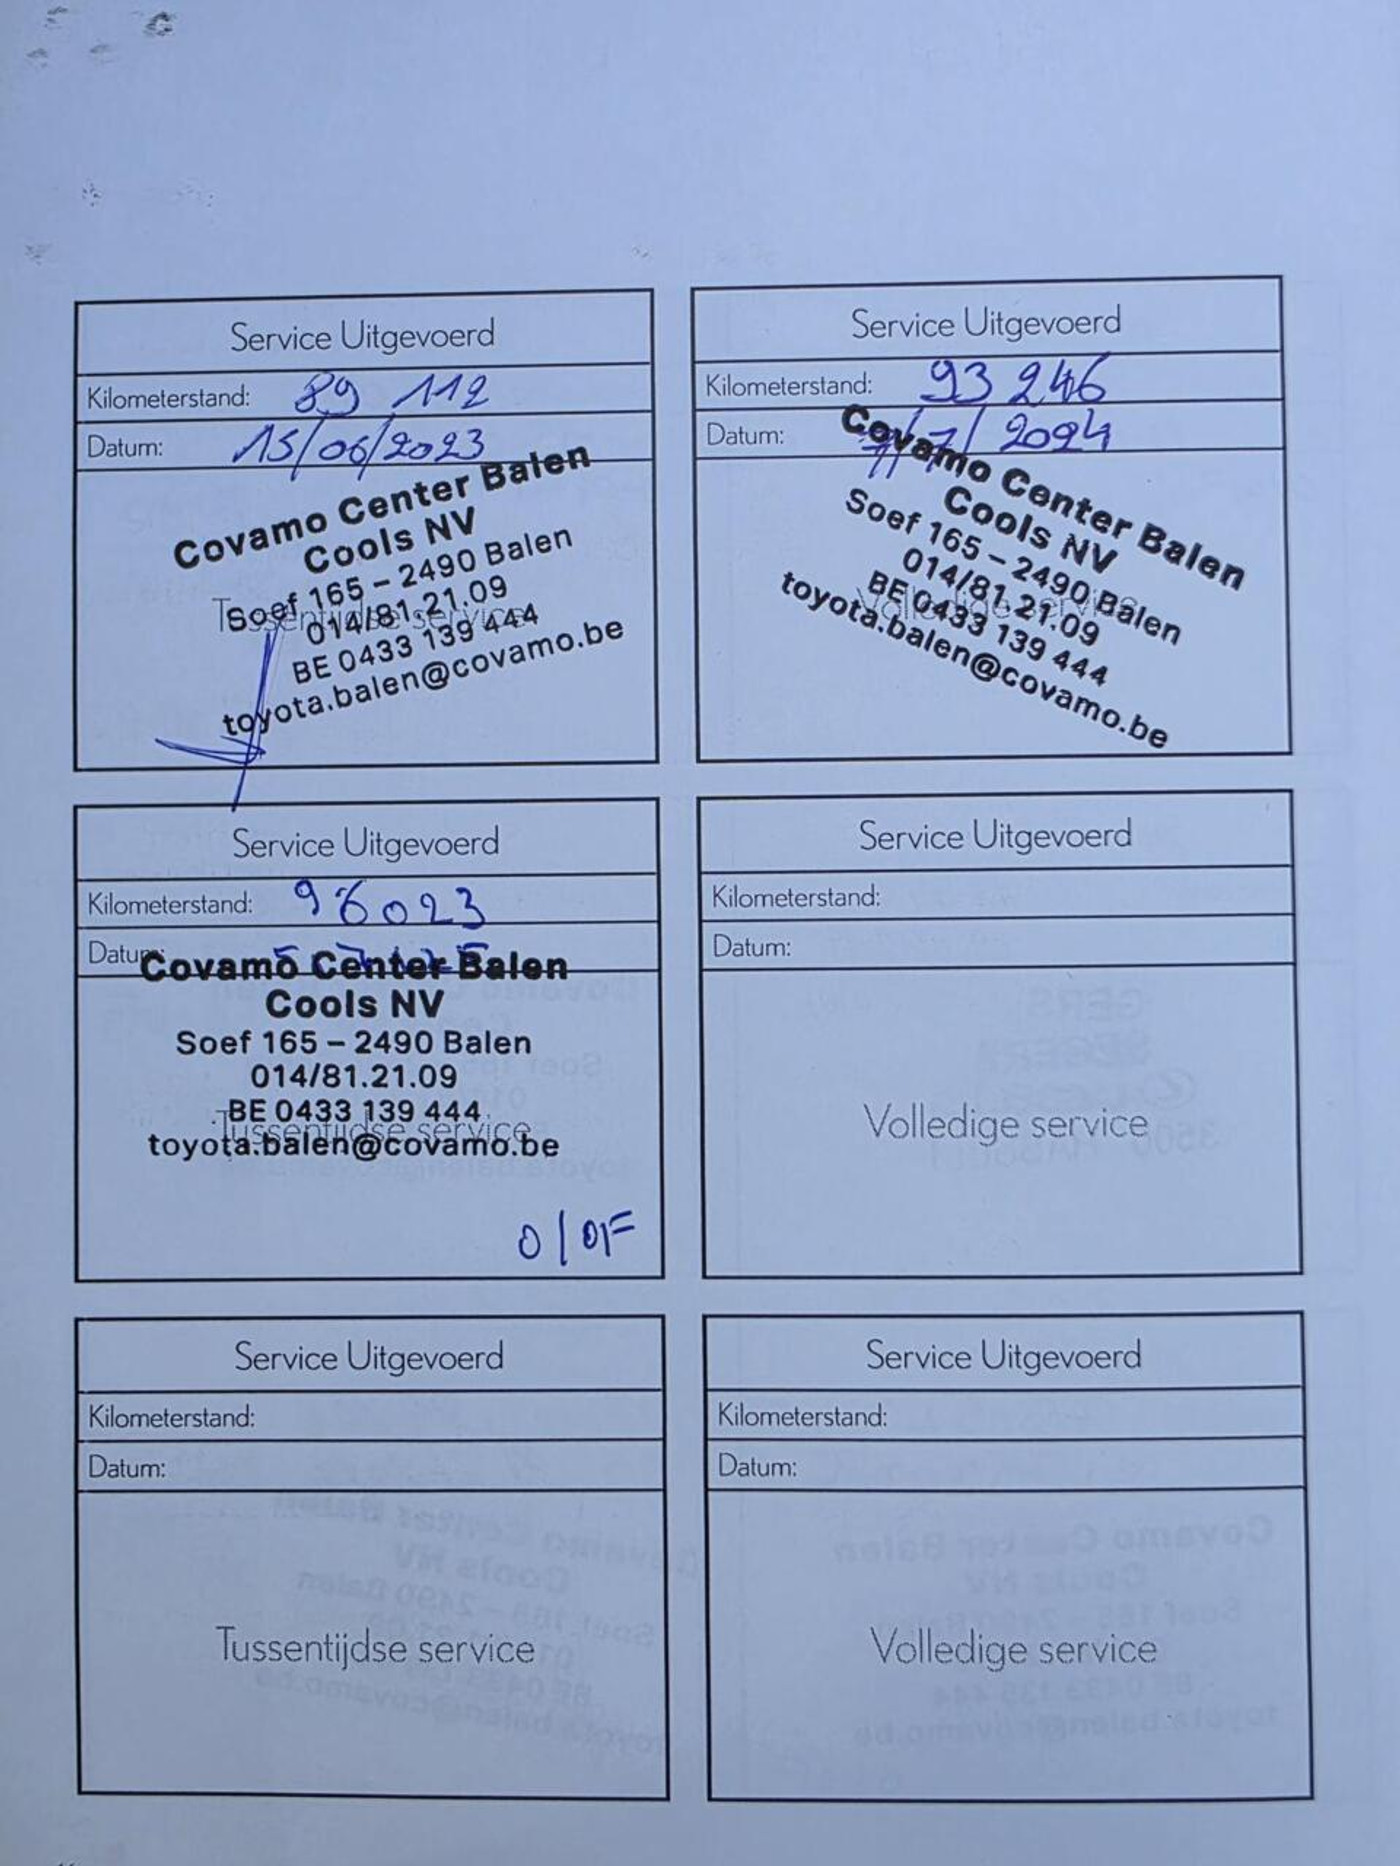 Service Uitgevoerd
Kilometerstand: 89 112
Datum: 15/06/2023
Covamo Center Balen
Cools NV
Soef 165 – 2490 Balen
Tussentijdse service
014/81.21.09
BE 0433 139 444
toyota.balen@covamo.be
Service Uitgevoerd
Kilometerstand: 93 246
Datum: /7/2024
Covamo Center Balen
Cools NV
Soef 165 – 2490 Balen
014/81.21.09
Volledige service
BE 0433 139 444
toyota.balen@covamo.be
Service Uitgevoerd
Kilometerstand: 96023
Datum:
Covamo Center Balen
Cools NV
Soef 165 – 2490 Balen
014/81.21.09
BE 0433 139 444
Tussentijdse service
toyota.balen@covamo.be
O/OF
Service Uitgevoerd
Kilometerstand:
Datum:
Volledige service
Service Uitgevoerd
Kilometerstand:
Datum:
Tussentijdse service
Service Uitgevoerd
Kilometerstand:
Datum:
Volledige service